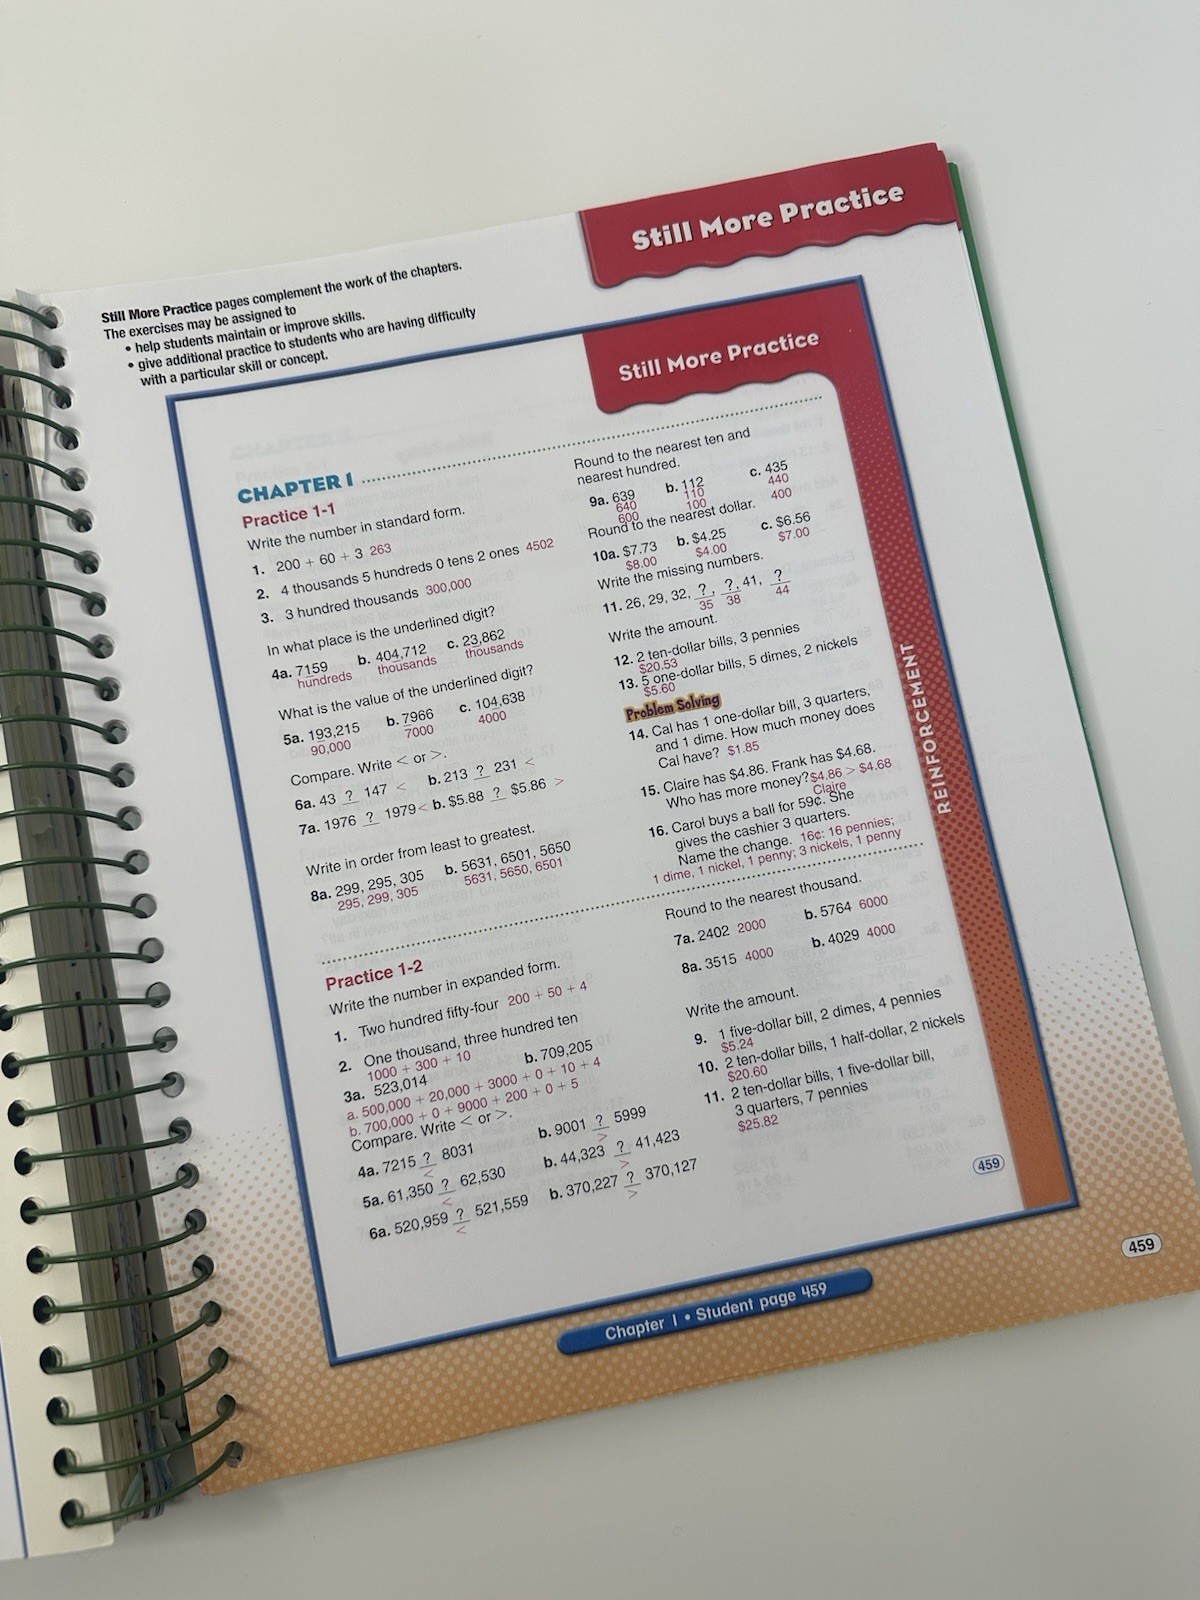 Still More Practice
Still More Practice pages complement the work of the chapters.
The exercises may be assigned to
• help students maintain or improve skills.
• give additional practice to students who are having difficulty
with a particular skill or concept.
Still More Practice
CHAPTER 1
Practice 1-1
Write the number in standard form.
1. 200 + 60 + 3 263
2. 4 thousands 5 hundreds 0 tens 2 ones 4502
3. 3 hundred thousands 300,000
In what place is the underlined digit?
4a. 7159 b. 404,712 c. 23,862
hundreds thousands thousands
What is the value of the underlined digit?
5a. 193,215 b. 7966 c. 104,638
90,000 7000 4000
Compare. Write < or >.
6a. 43 ? 147 < b. 213 ? 231 <
7a. 1976 ? 1979 < b. $5.88 ? $5.86 >
Write in order from least to greatest.
8a. 299, 295, 305 b. 5631, 6501, 5650
295, 299, 305 5631, 5650, 6501
Round to the nearest ten and
nearest hundred.
9a. 639 b. 112 c. 435
640 110 440
600 100 400
Round to the nearest dollar.
10a. $7.73 b. $4.25 c. $6.56
$8.00 $4.00 $7.00
Write the missing numbers.
11. 26, 29, 32, ?, ?, 41, ?
35 38 44
Write the amount.
12. 2 ten-dollar bills, 3 pennies
$20.53
13. 5 one-dollar bills, 5 dimes, 2 nickels
$5.60
Problem Solving
14. Cal has 1 one-dollar bill, 3 quarters,
and 1 dime. How much money does
Cal have? $1.85
15. Claire has $4.86. Frank has $4.68.
Who has more money? $4.86 > $4.68
Claire
16. Carol buys a ball for 59¢. She
gives the cashier 3 quarters.
Name the change. 16¢: 16 pennies;
1 dime, 1 nickel, 1 penny; 3 nickels, 1 penny
REINFORCEMENT
Practice 1-2
Write the number in expanded form.
1. Two hundred fifty-four 200 + 50 + 4
2. One thousand, three hundred ten
1000 + 300 + 10
3a. 523,014 b. 709,205
a. 500,000 + 20,000 + 3000 + 0 + 10 + 4
b. 700,000 + 0 + 9000 + 200 + 0 + 5
Compare. Write < or >.
4a. 7215 ? 8031 b. 9001 ? 5999
< >
5a. 61,350 ? 62,530 b. 44,323 ? 41,423
< >
6a. 520,959 ? 521,559 b. 370,227 ? 370,127
< >
Round to the nearest thousand.
7a. 2402 2000 b. 5764 6000
8a. 3515 4000 b. 4029 4000
Write the amount.
9. 1 five-dollar bill, 2 dimes, 4 pennies
$5.24
10. 2 ten-dollar bills, 1 half-dollar, 2 nickels
$20.60
11. 2 ten-dollar bills, 1 five-dollar bill,
3 quarters, 7 pennies
$25.82
459
Chapter 1 • Student page 459
459